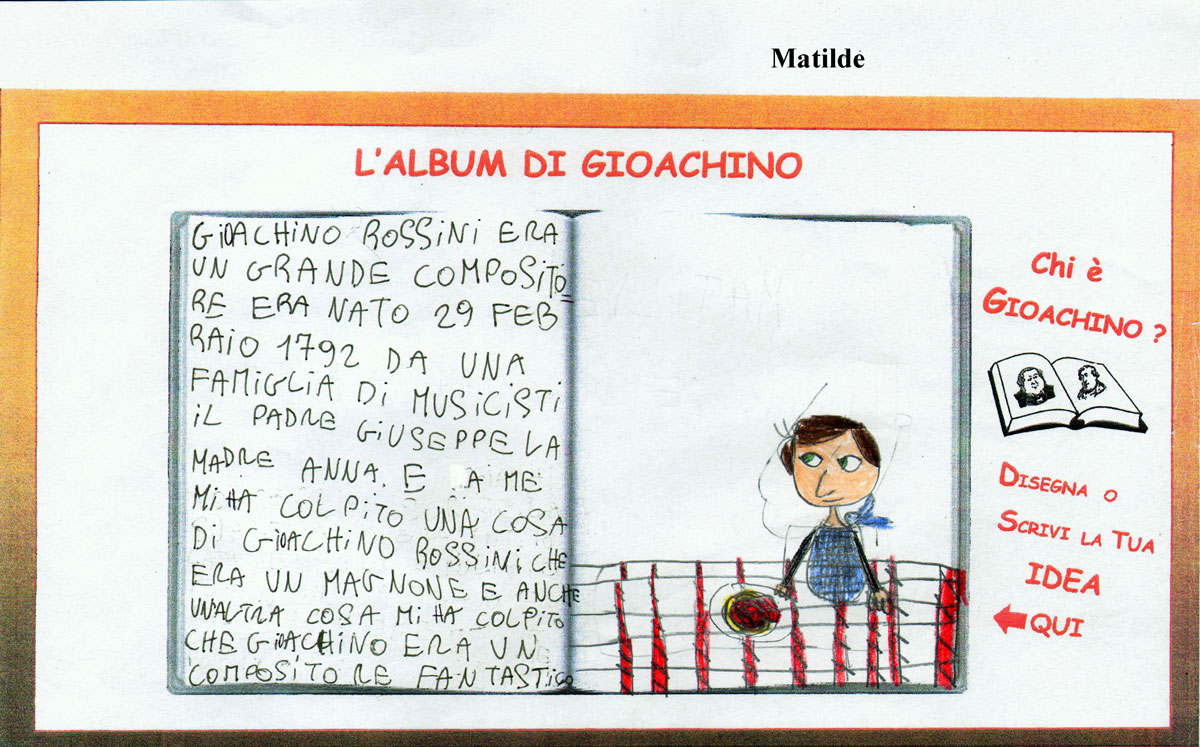 Matilde
L'ALBUM DI GIOACHINO
GIOACHINO ROSSINI ERA
UN GRANDE COMPOSITO=
RE ERA NATO 29 FEB
RAIO 1792 DA UNA
FAMIGLIA DI MUSICISTI
IL PADRE GIUSEPPE LA
MADRE ANNA. E A ME
MI HA COLPITO UNA COSA
DI GIOACHINO ROSSINI CHE
ERA UN MAGNONE E ANCHE
UN'ALTRA COSA MI HA COLPITO
CHE GIOACHINO ERA UN
COMPOSITORE FANTASTICO
Chi è
GIOACHINO ?
DISEGNA O
SCRIVI LA TUA
IDEA
QUI